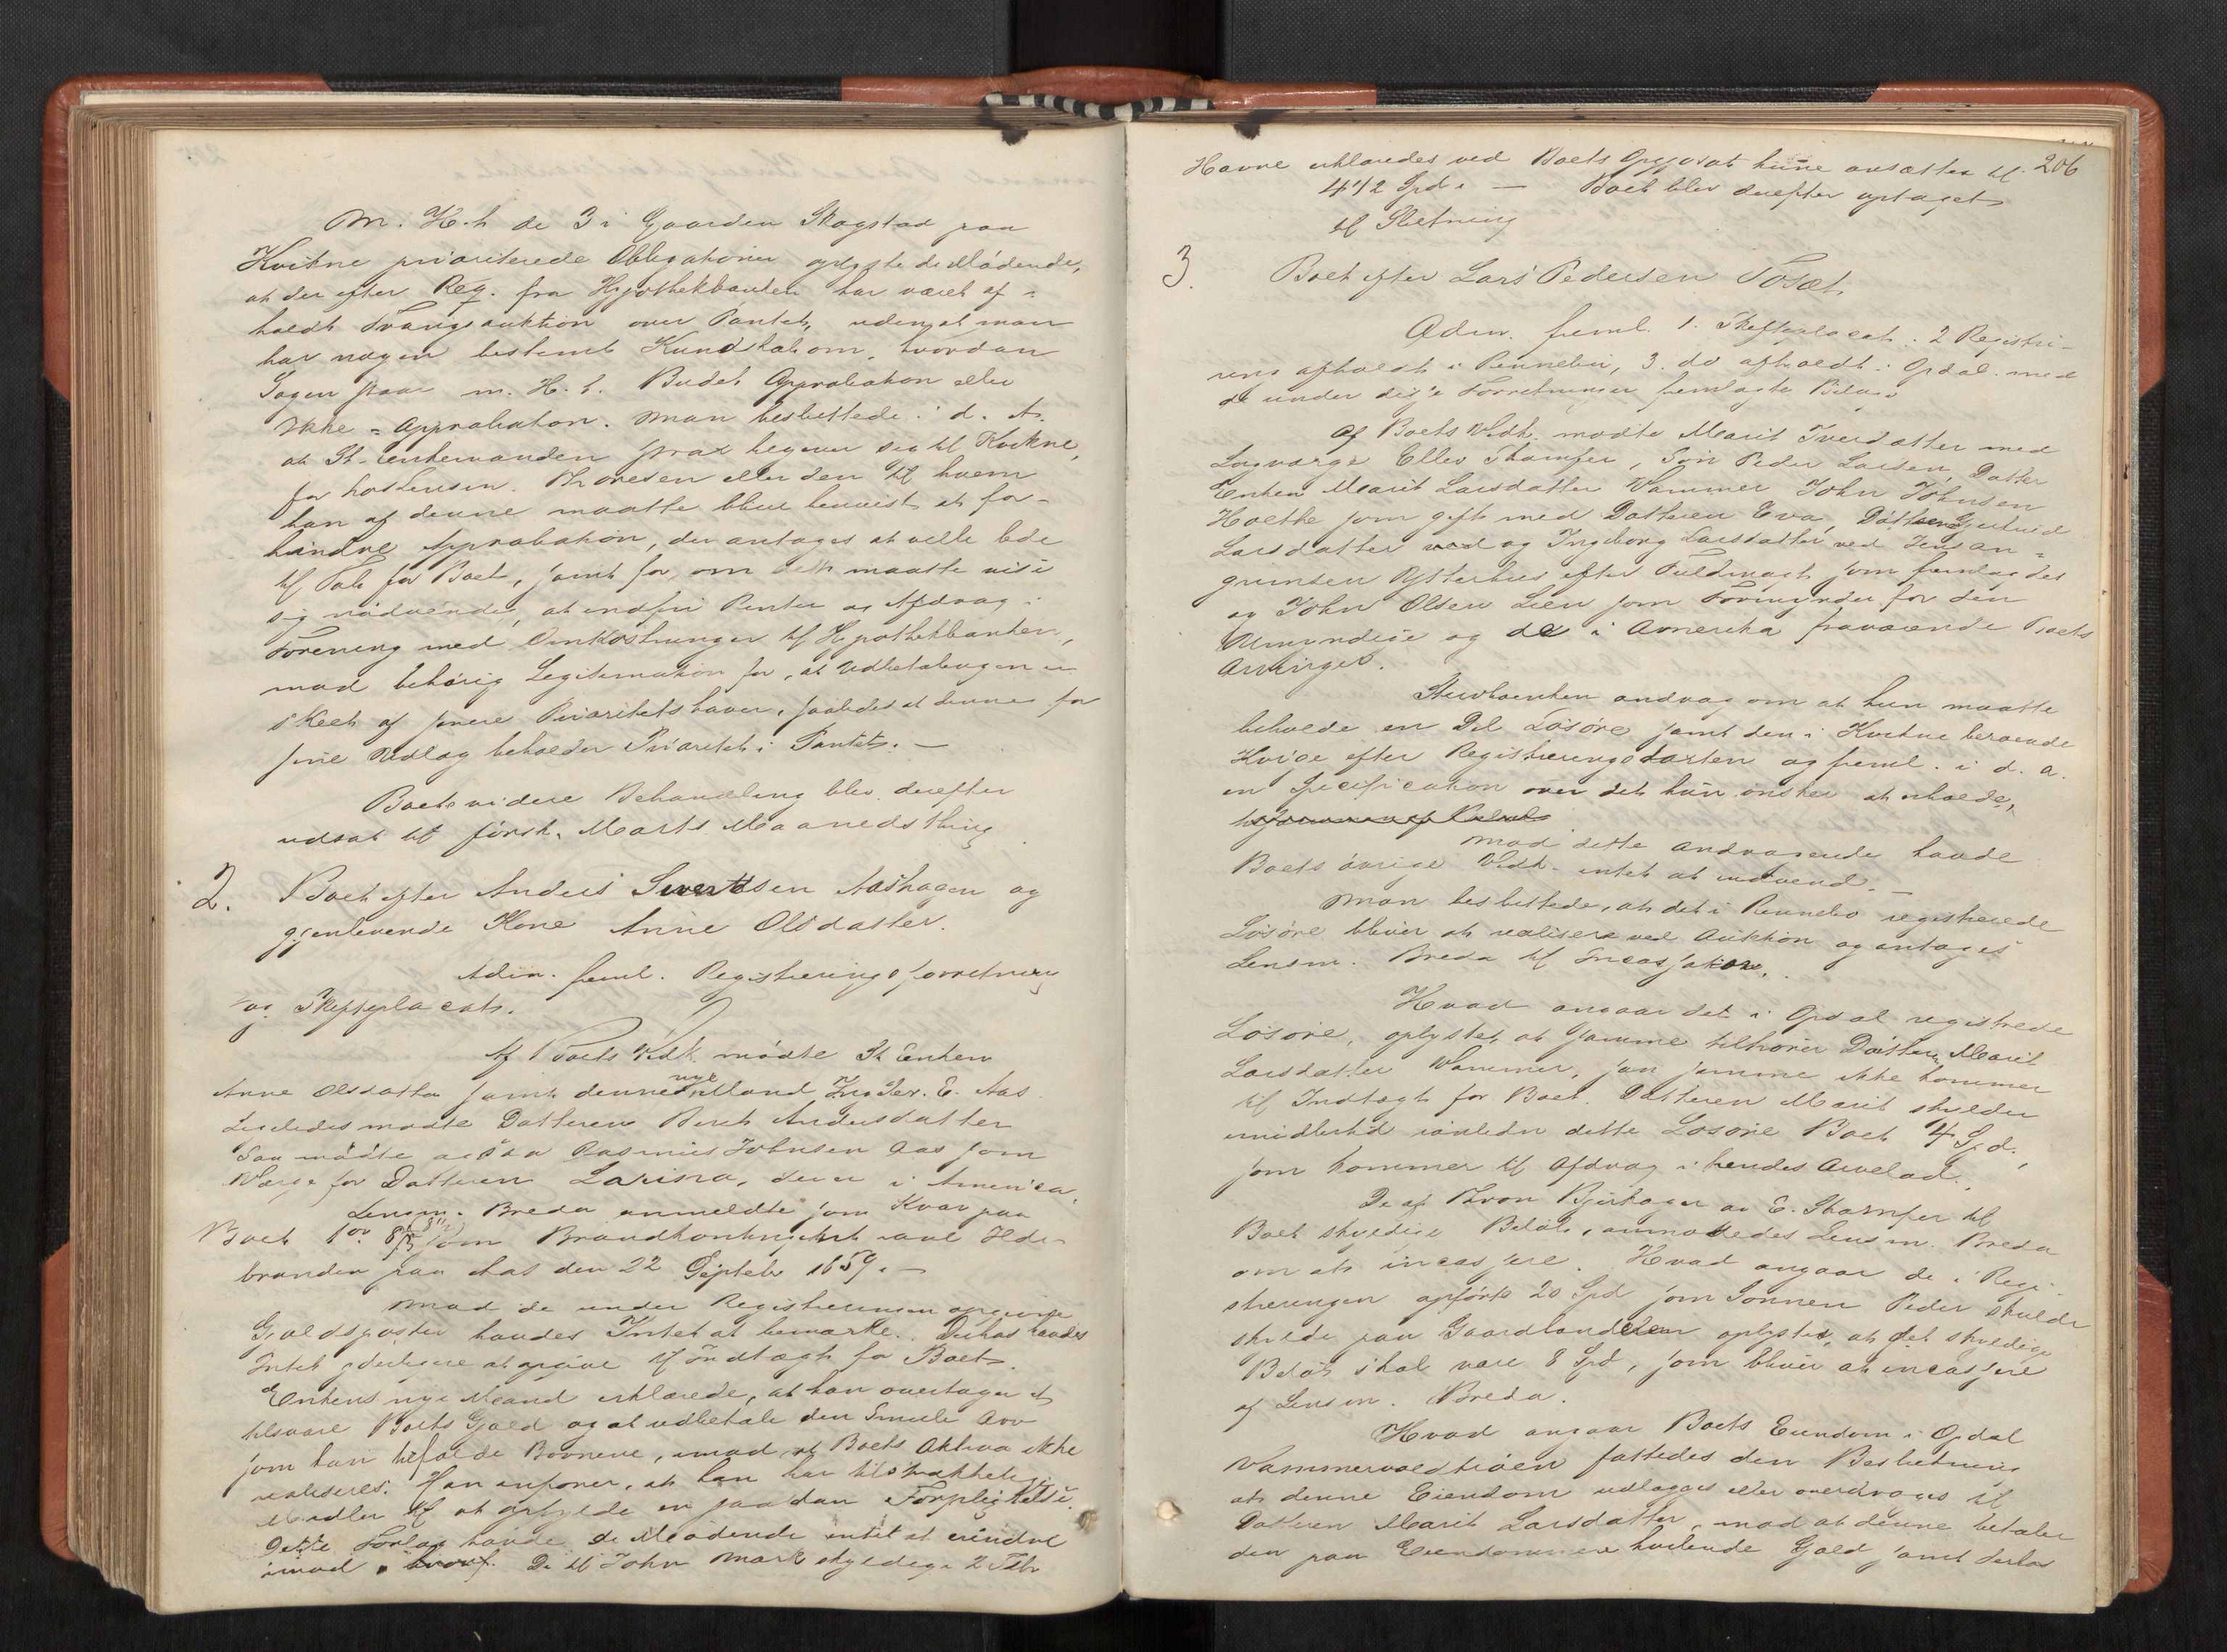 M. H. t. de 3 i Gaarden Skogstad paa
Kvikne prioriterede Obligationer oplyste de Mødende,
at der efter Req. fra Hypothekbanken har været af-
holdt Tvangsauktion over Pantet, uden at man
har nogen bestemt Kundskab om, hvordan
Sagen staar m. H. t. Budets Approbation eller
Ikke-Approbation. Man besluttede i d. A.
at St-enkemanden strax begiver sig til Kvikne,
for hos Lensm. Thoresen eller den til hvem
han af denne maatte blive henvist at for-
hindre Approbation, der antages at ville lede
til Tab for Boet, samt for, om dette maatte vise
sig nødvendig, at indfri Renter og Afdrag i
Forening med Omkostninger til Hypothekbanken,
mod behørig Legitimation for, at Udbetalingen er
skeet af senere Prioritetshaver, saaledes at denne for
sine Udlæg beholder Prioritet i Pantet. —
Boets videre Behandling blev derefter
udsat til først. Marts Maanedsthing
2. Boet efter Anders Sivertsen Aashagen og
gjenlevende Kone Anne Olsdatter.
Adm. freml. Registreringsforretning
og Skifteplacat.
Af Boets Vedk. mødte St Enken
Anne Olsdatter samt dennes nye Mand Ingebr. E. Aas
Ligeledes mødte Datteren Berit Andersdatter
Saa mødte ogsaa Rasmus Johnsen Aas som
Værge for Datteren Lavina, der er i America.
Lensm. Breda anmeldte som Krav paa
Boet 1 ort 8 ß som Brandkontingent i anl Ilde-
branden paa Aas den 22 Septebr 1859. —
Mod de under Registreringen opgivne
Gjældsposter havdes Intet at bemærke. Derhos havdes
Intet yderligere at opgive til Indtægt for Boet.
Enkens nye Mand erklærede, at han overtager at
tilsvare Boets Gjæld og at udbetale den Smule Arv
som kan tilfalde Børnene, imod at Boets Aktiva ikke
realiseres. Han anfører, at han har tilstrækkelig
Midler til at opfylde en saadan Forpligtelse.
Dette Forslag havde de Mødende intet at erindre
imod. De til John Mark skyldige 2 Tdr
206
Havre erklæredes ved Boets Opgjør at kunne ansættes til
4 1/2 Spd. — Boet blev derefter optaget
til Slutning
3. Boet efter Lars Pedersen Tosæt.
Adm. freml. 1. Skifteplacat. 2 Registre-
ring afholdt i Rennebu, 3. do afholdt i Opdal med
de under disse Forretninger fremlagte Bilage
Af Boets Vedk. mødte Marit Iversdatter med
Lagværge Ellev Skamfer, Søn Peder Larsen, Datter
Enken Marit Larsdatter Vammer John Johnsen
Hoelhe som gift med Datteren Eva, Datteren Gjertrud
Larsdatter ved og Ingeborg Larsdatter ved Jens An-
grimsen Ytterhus efter Fuldmagt som fremlagdes
og John Olsen Lien som Formynder for den
Umyndige og de i Amerika fraværende Boets
Arvinger.
Stervboenken androg om at hun maatte
beholde en Del Løsøre samt den i Kvikne beroende
Kvige efter Registreringstaxten og freml. i d. A.
en Specification over det hun ønsker at erholde,
Mod dette Andragende havde
Boets øvrige Vedk. intet at indvende. —
Man besluttede, at det i Rennebo registrerede
Løsøre bliver at realisere ved Auktion og antages
Lensm. Breda til Incassator.
Hvad angaar det i Opdal registrede
Løsøre, oplystes, at samme tilhører Datteren Marit
Larsdatter Vammer, saa samme ikke kommer
til Indtægt for Boet. Datteren Marit skylder
imidlertid i anledn dette Løsøre Boet 4 Spd.,
som kommer til Afdrag i hendes Arvelod.
De af Thron Bjerkager og E. Skamfer til
Boet skyldige Beløb, anmodedes Lensm. Breda
om at incassere. Hvad angaar de i Regi-
streringen opførte 20 Spd som Sønnen Peder skulde
skylde paa Gaardhandelen oplystes, at det skyldige
Beløb skal være 8 Spd, som bliver at incassere
af Lensm. Breda.
Hvad angaar Boets Eiendom i Opdal
Vammervoldtrøen fattedes den Beslutning
at denne Eiendom udlægges eller overdrages til
Datteren Marit Larsdatter, mod at denne betaler
den paa Eiendommen heftende Gjæld samt derhos